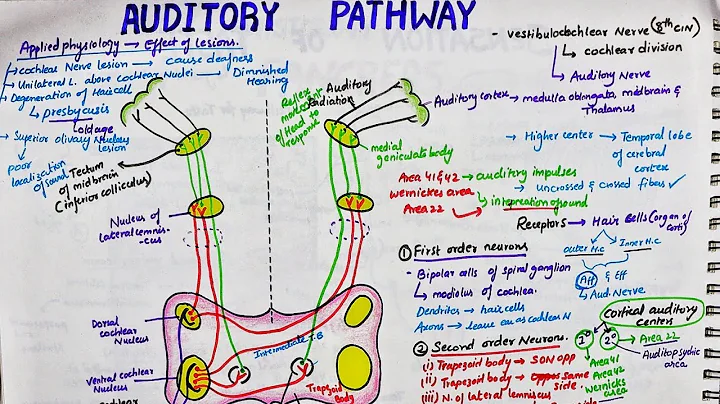 AUDITORY PATHWAY
Applied physiology → Effect of lesions.
→ cochlear Nerve lesion → cause deafness
→ Unilateral L. above cochlear Nuclei → Diminished
Hearing
→ Degeneration of Haircell
↳ presbycusis
↳ oldage
→ Superior olivary Nucleus
lesion
poor
localization
of sound
Tectum
of midbrain
(inferior colliculus)
Nucleus of
lateral lemnis-
-cus
Dorsal
cochlear
Nucleus
Ventral cochlear
Nucleus
Reflex
movement
of Head to
response
Auditory
Radiation
medial
geniculate body
Intermediate
Trapezoid
Body
- vestibulocochlear Nerve (8th CN)
↳ cochlear division
↳ Auditory Nerve
Auditory cortex → medulla oblongata, midbrain &
Thalamus
→ Higher center → Temporal lobe
of cerebral
cortex
Area 41 & 42 → auditory impulses
Wernickes area
→ uncrossed & crossed fibers ✓
Area 22
interpreation of sound
Receptors → Hair Cells (organ of
Corti)
outer H.C Inner H.C
Aff & Eff
↳ Aud. Nerve
① First order neurons
- Bipolar cells of spiral ganglion
↳ modiolus of cochlea.
Dendrites → hair cells
Axons → leave
as cochlear N
Cortical auditory
center
1° 2° → Area 22
Auditopsychic
area
Area 41
Area 42
Wernicks
area
② Second order Neurons.
(i) Trapezoid body → SON opp
(ii) Trapezoid body → same
side.
(iii) N. of lateral lemniscus